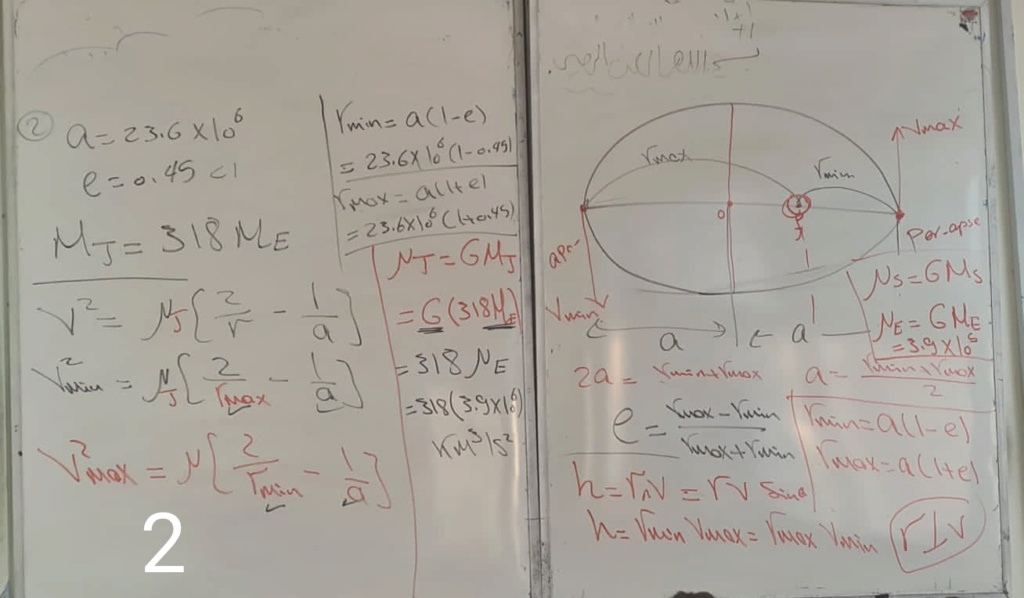 ② a = 23.6 × 10⁶
e = 0.45 < 1
M_J = 318 M_E
V² = μ_J [2/r − 1/a]
V²min = μ_J [2/rmax − 1/a]
V²max = μ [2/rmin − 1/a]
2
rmin = a(1-e)
= 23.6×10⁶(1-0.45)
rmax = a(1+e)
= 23.6×10⁶(1+0.45)
μ_J = GM_J
= G(318M_E)
= 318 μ_E
= 318(3.9×10⁶)
KM³/s²
rmax
rmin
Vmax
o
J
apo-
Per-apse
Vmin
a
a
μ_S = GM_S
μ_E = GM_E
= 3.9×10⁶
2a = rmin+rmax
a = (rmin+rmax)/2
e = (rmax - rmin)/(rmax + rmin)
rmin = a(1-e)
rmax = a(1+e)
h = r∧v = rv sinθ
h = rmin Vmax = rmax Vmin
r⊥v